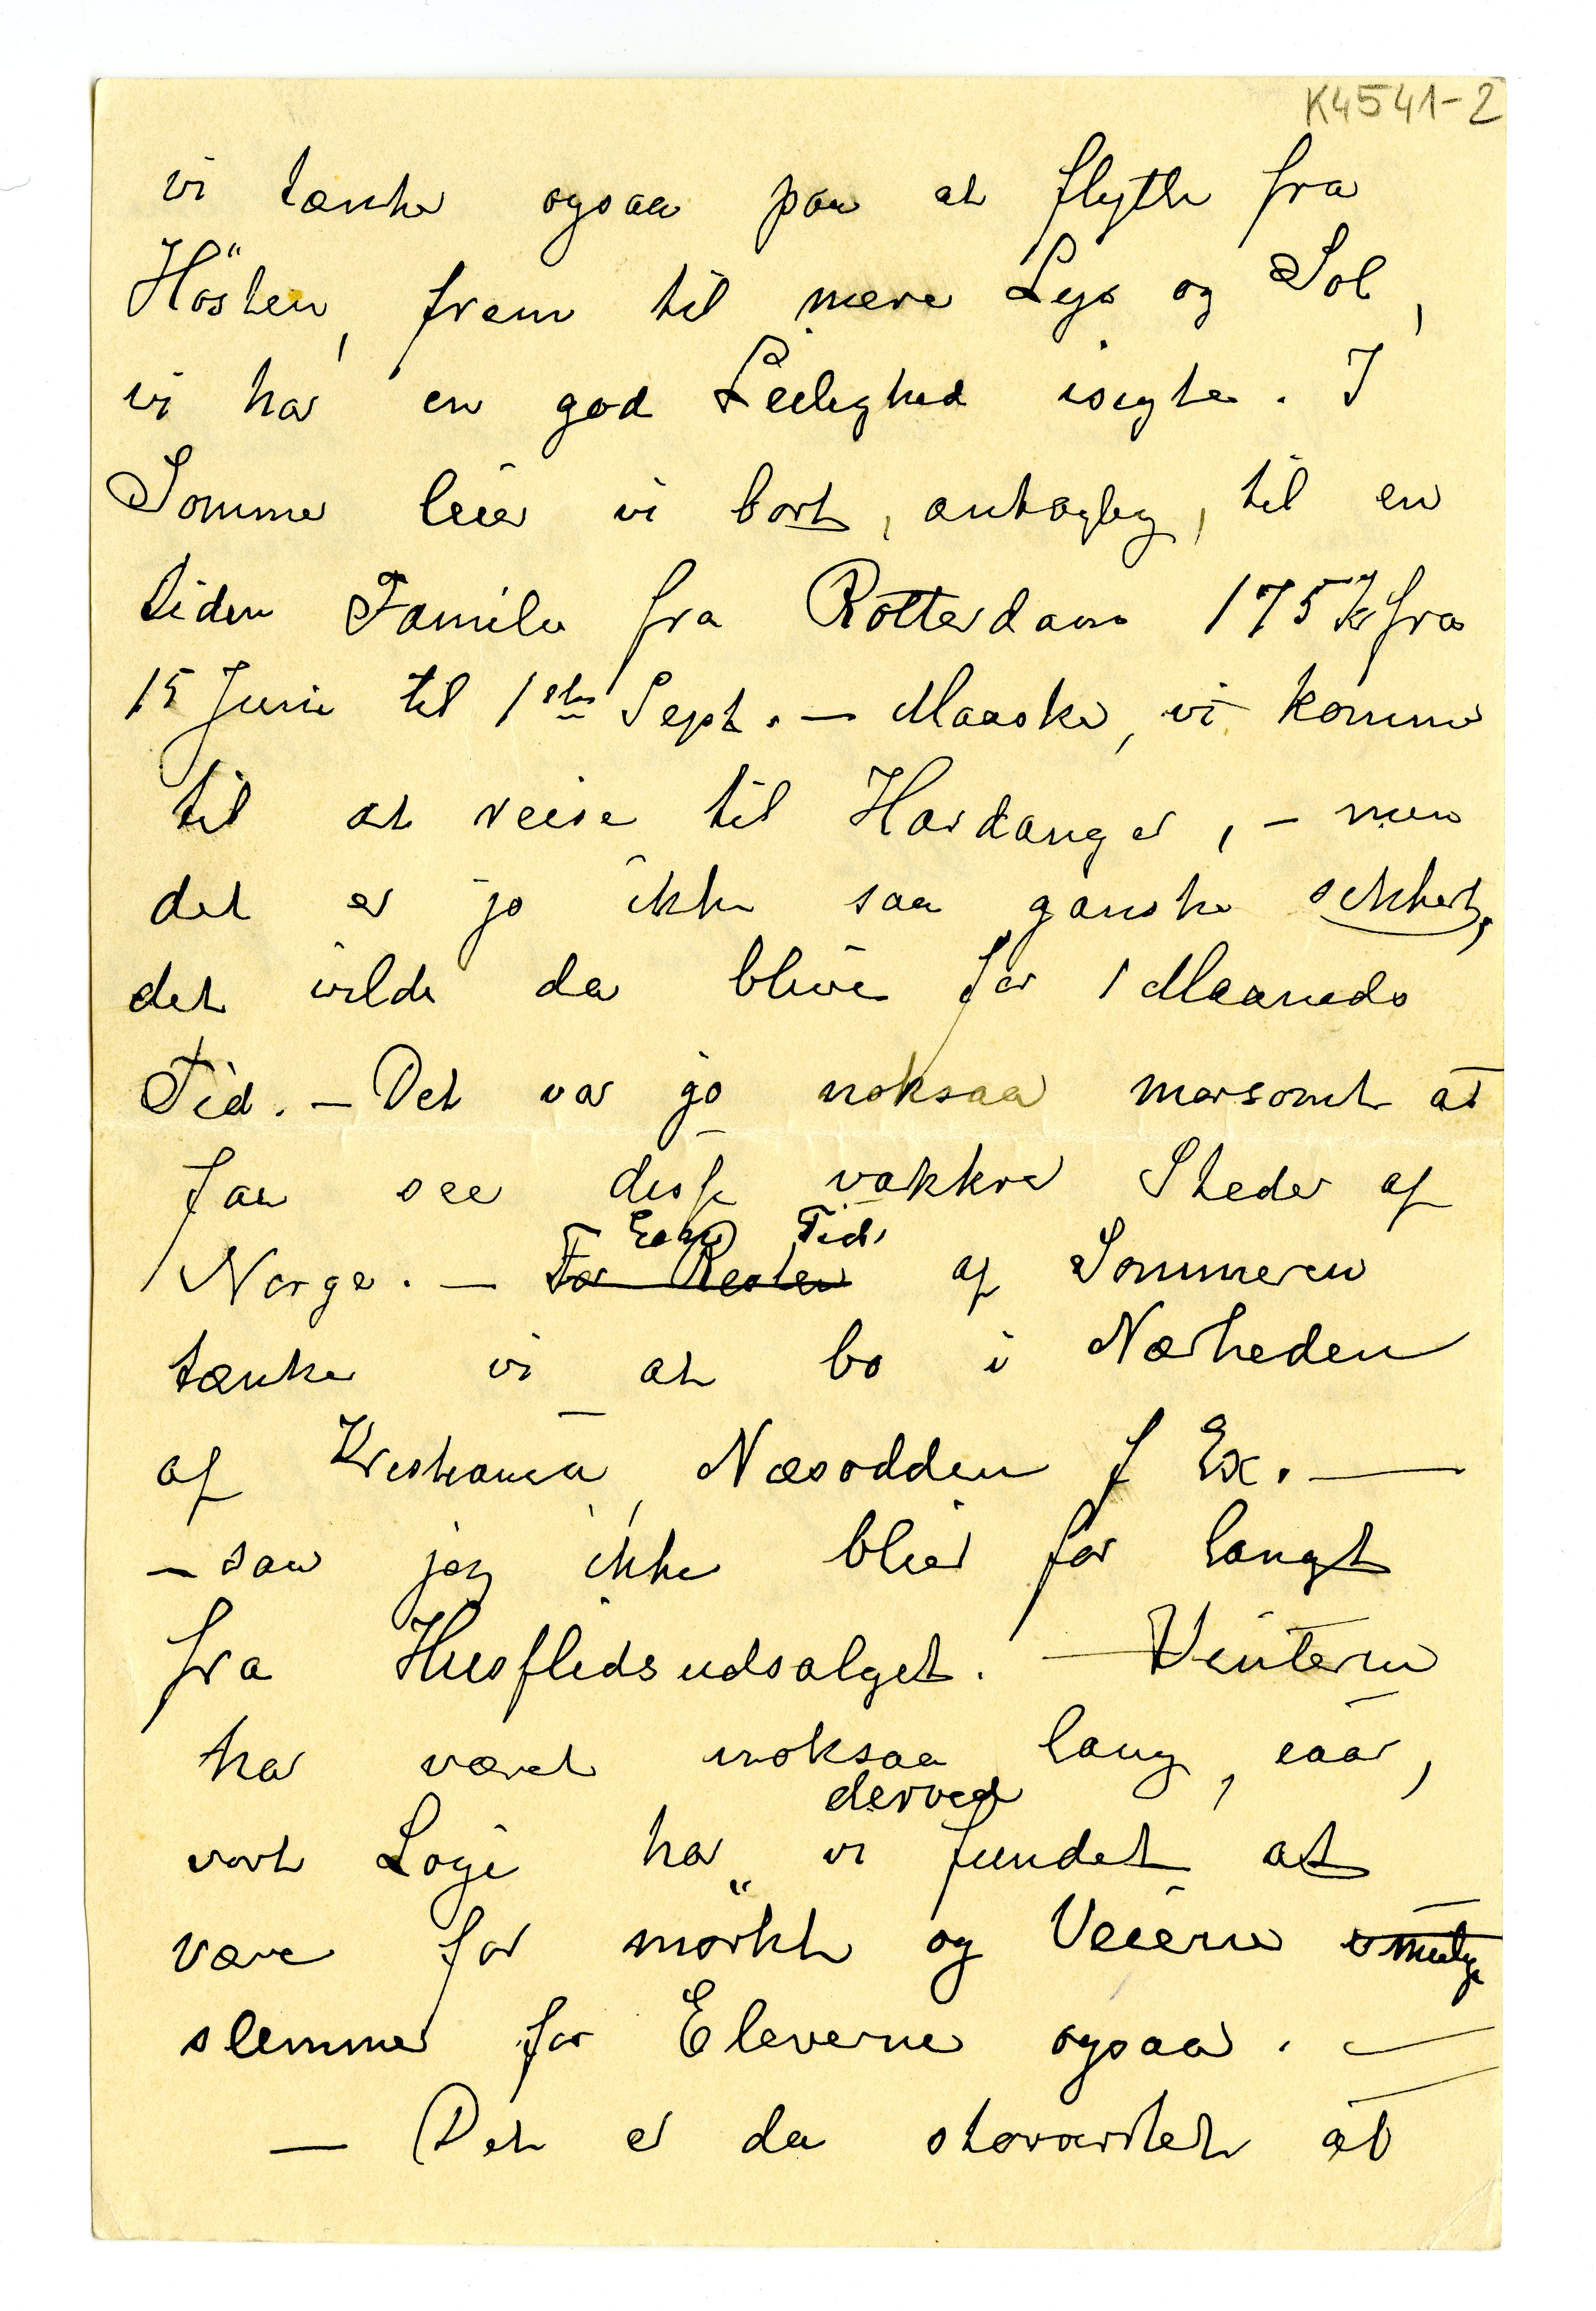 K4541-2
vi tænker ogsaa paa at flytte fra
Hösten, frem til mere Lys og Sol,
vi har en god Leilighed isigte. I
Sommer leier vi bort, antagelig, til en
liden Familie fra Rotterdam 175 Kr fra
15 Juni til 1ste Sept. — Maaske, vi kommer
til at reise til Hardanger, — men
det er jo ikke saa ganske sikkert,
det vilde da blive for 1 Maaneds
Tid. — Det var jo noksaa morsomt at
faa see disse vakkre Steder af
Norge. — For Resten af Sommeren
Tid,
tænker vi at bo i Nærheden
af Kristiania, Næsodden f Ex. —
— saa jeg ikke blier for langt
fra Husflidsudsalget. — Vinteren
har været noksaa lang, iaar,
vort Logi har vi derved fundet at
være for mörkt og Veiene
slemme for Eleverne ogsaa. —
— Det er da storartet at